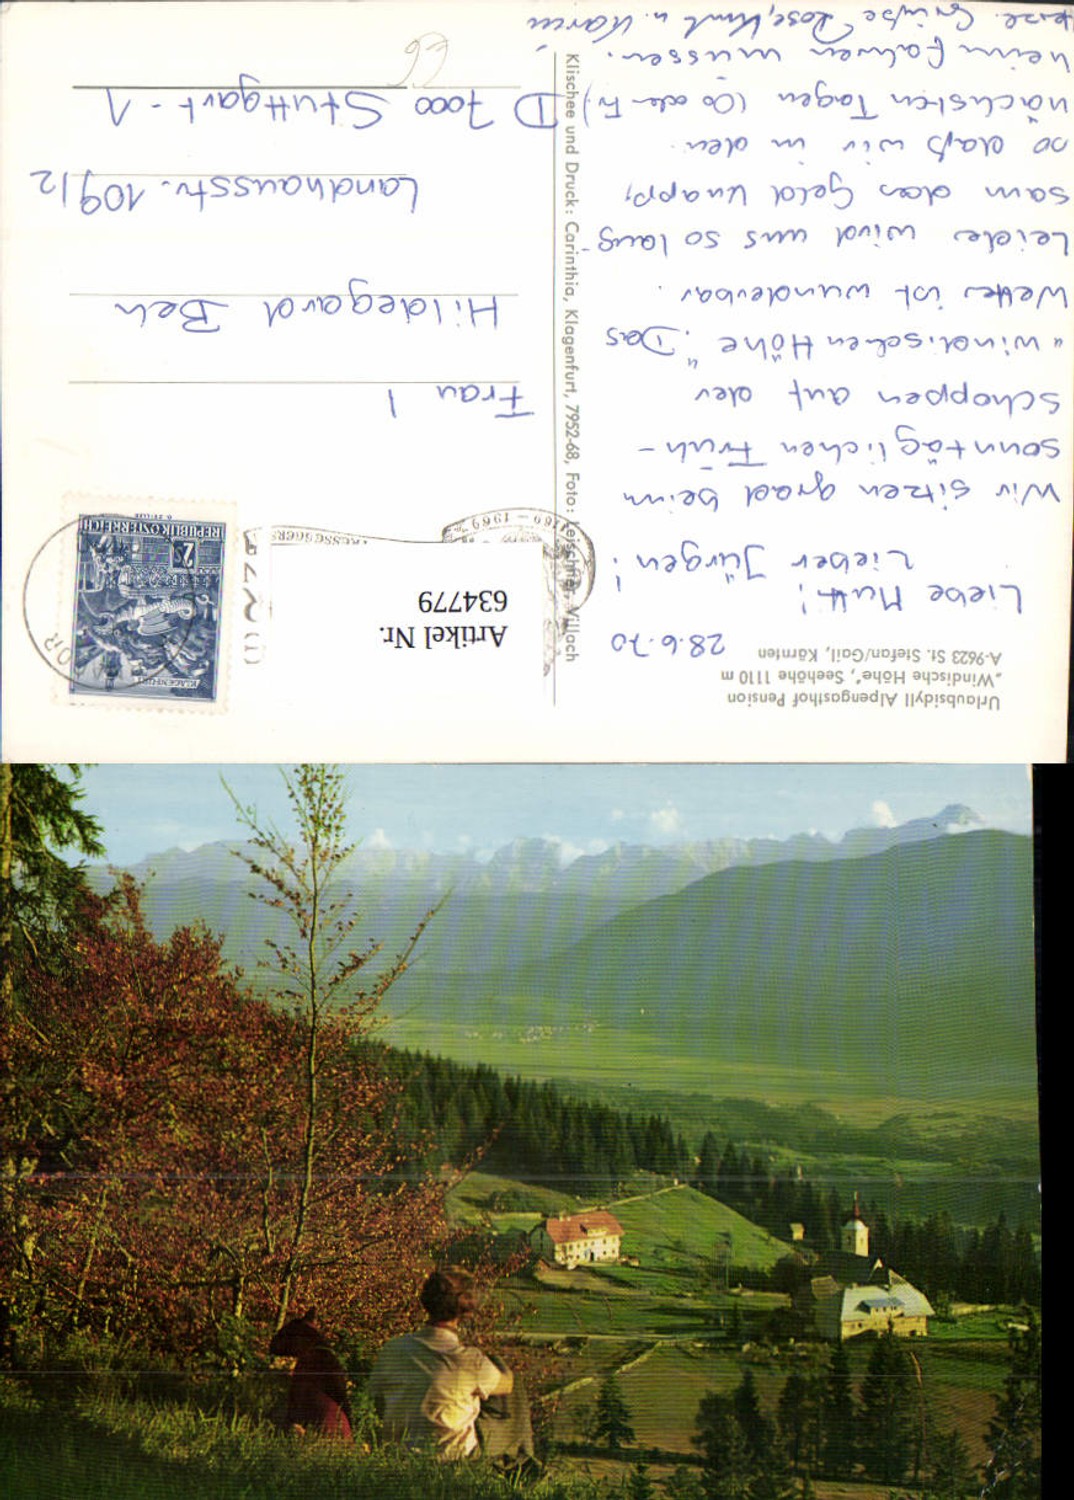 Urlaubsidyll Alpengasthof Pension
"Windische Höhe", Seehöhe 1110 m
A-9623 St. Stefan/Gail, Kärnten
28.6.70
Liebe Mutti!
Lieber Jürgen!
Wir sitzen grad beim
sonntäglichen Früh-
schoppen auf der
"windischen Höhe". Das
Wetter ist wunderbar.
Leider wird uns so lang-
sam das Geld knapp,
so daß wir in den
nächsten Tagen (Do oder Fr)
heim fahren müssen.
Grüße Rose, Kurt u. Karin
Klischee und Druck: Carinthia, Klagenfurt, 7952-68, Foto: Leischner, Villach
Artikel Nr.
634779
KLAGENFURT
2S
REPUBLIK ÖSTERREICH
1969 – 1969
Frau
Hildegard Beh
Landhausstr. 109/2
D 7000 Stuttgart-1